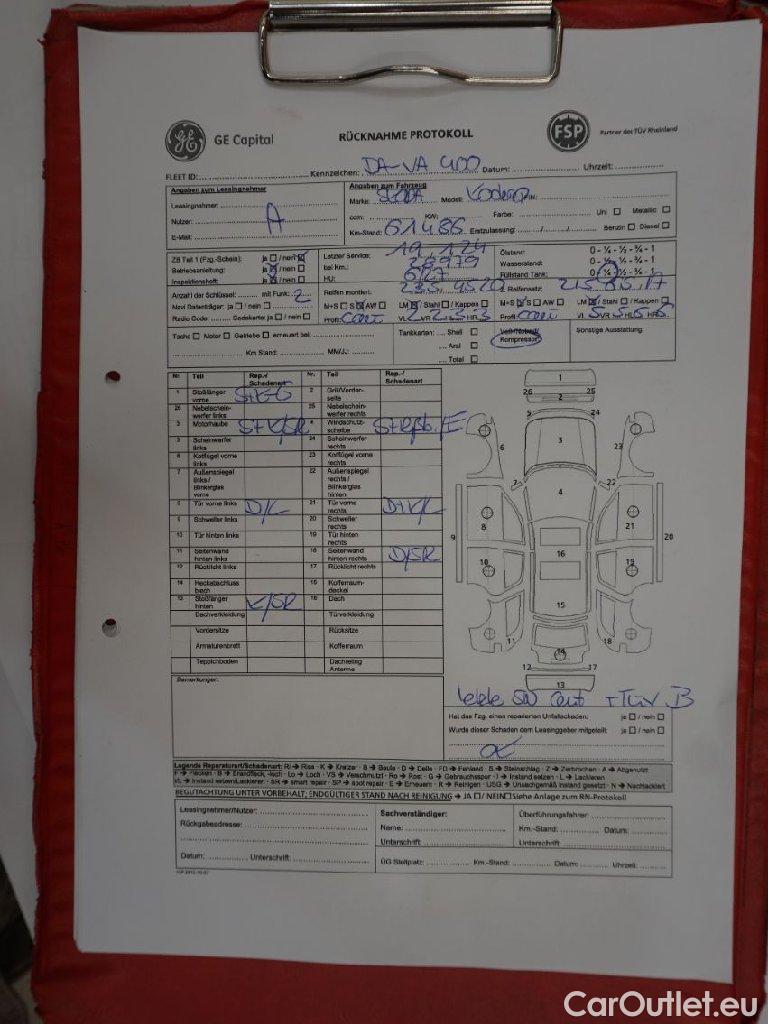 GE Capital
RÜCKNAHME PROTOKOLL
FSP
Partner des TÜV Rheinland
FLEET ID: Kennzeichen: DA-VA 400 Datum: Uhrzeit:
Angaben zum Leasingnehmer
Leasingnehmer:
Nutzer: A
E-Mail:
Angaben zum Fahrzeug
Marke: SKODA Modell: Kodiaq
ccm: KW: Farbe: Uni Metallic
Km-Stand: 61486 Erstzulassung: Benzin Diesel
ZB Teil 1 (Fzg.-Schein): ja / nein
Betriebsanleitung: ja / nein
Inspektionsheft ja / nein
Letzter Service: 19.1.24
bei Km.: 28979
HU: 6/27
Ölstand: 0 - ¼ - ½ - ¾ - 1
Wasserstand: 0 - ¼ - ½ - ¾ - 1
Füllstand Tank: 0 - ¼ - ½ - ¾ - 1
Anzahl der Schlüssel: mit Funk: 2
Navi Datenträger: ja / nein
Radio Code: Codekarte: ja / nein
Reifen montiert: 235 45 20
M+S S AW LM / Stahl / Kappen
Profil: Conti VL VR HL HR
Reifensatz: 215 65 17
M+S S AW LM / Stahl / Kappen
Profil Conti VL 5 VR 5 HL 5 HR 5
Tacho Motor Getriebe erneuert bei:
Km Stand: MM/JJ:
Tankkarten: Shell
Aral
Total
Kompressor
Sonstige Ausstattung:
Nr. Teil Rep./ Schadenart Nr. Teil Rep./ Schadenart
1 Stoßfänger vorne 2 Grill/Vorderseite
26 Nebelscheinwerfer links 25 Nebelscheinwerfer rechts
3 Motorhaube St K/SR 4 Windschutzscheibe
5 Scheinwerfer links 24 Scheinwerfer rechts
6 Kotflügel vorne links 23 Kotflügel vorne rechts
7 Außenspiegel links/ Blinkerglas vorne 22 Außenspiegel rechts/ Blinkerglas hinten
8 Tür vorne links D/L 21 Tür vorne rechts
9 Schweller links 20 Schweller rechts
10 Tür hinten links 19 Tür hinten rechts
11 Seitenwand hinten links 18 Seitenwand hinten rechts D/SR
12 Rücklicht links 17 Rücklicht rechts
14 Heckabschlussblech 15 Kofferraumdeckel
13 Stoßfänger hinten K/SR 16 Dach
Dachverkleidung Türverkleidung
Vordersitze Rücksitze
Armaturenbrett Kofferraum
Teppichboden Dachreling Antenne
1
2
26 25
5 24
3
6 23
7 22
4
8 21
9 20
16
10 19
15
11 18
14
12 17
13
Bemerkungen:
Hat das Fzg. einen reparierten Unfallschaden: ja / nein
Wurde dieser Schaden dem Leasinggeber mitgeteilt: ja / nein
Legende Reparaturart/Schadenart: RI → Riss · K → Kratzer · B → Beule · D → Delle · FD → Fehlend · S → Steinschlag · Z → Zerbrochen · A → Abgenutzt
F → Flecken · B → Brandfleck, -loch · Lo → Loch · VS → Verschmutzt · Ro → Rost · G → Gebrauchsspur · I → Instand setzen · L → Lackieren
IL → Instand setzen/Lackieren · SR → smart repair · SP → spot repair · E → Erneuern · R → Reinigen · USG → Unsachgemäß instand gesetzt · N → Nachlackiert
BEGUTACHTUNG UNTER VORBEHALT; ENDGÜLTIGER STAND NACH REINIGUNG → JA / NEIN Siehe Anlage zum RN-Protokoll
Leasingnehmer/Nutzer:
Rückgabeadresse:
Datum: Unterschrift:
Sachverständiger:
Name:
Unterschrift
Überführungsfahrer:
Km.-Stand: Datum:
Unterschrift
ÜG Stellplatz: Km.-Stand: Datum: Uhrzeit:
CarOutlet.eu